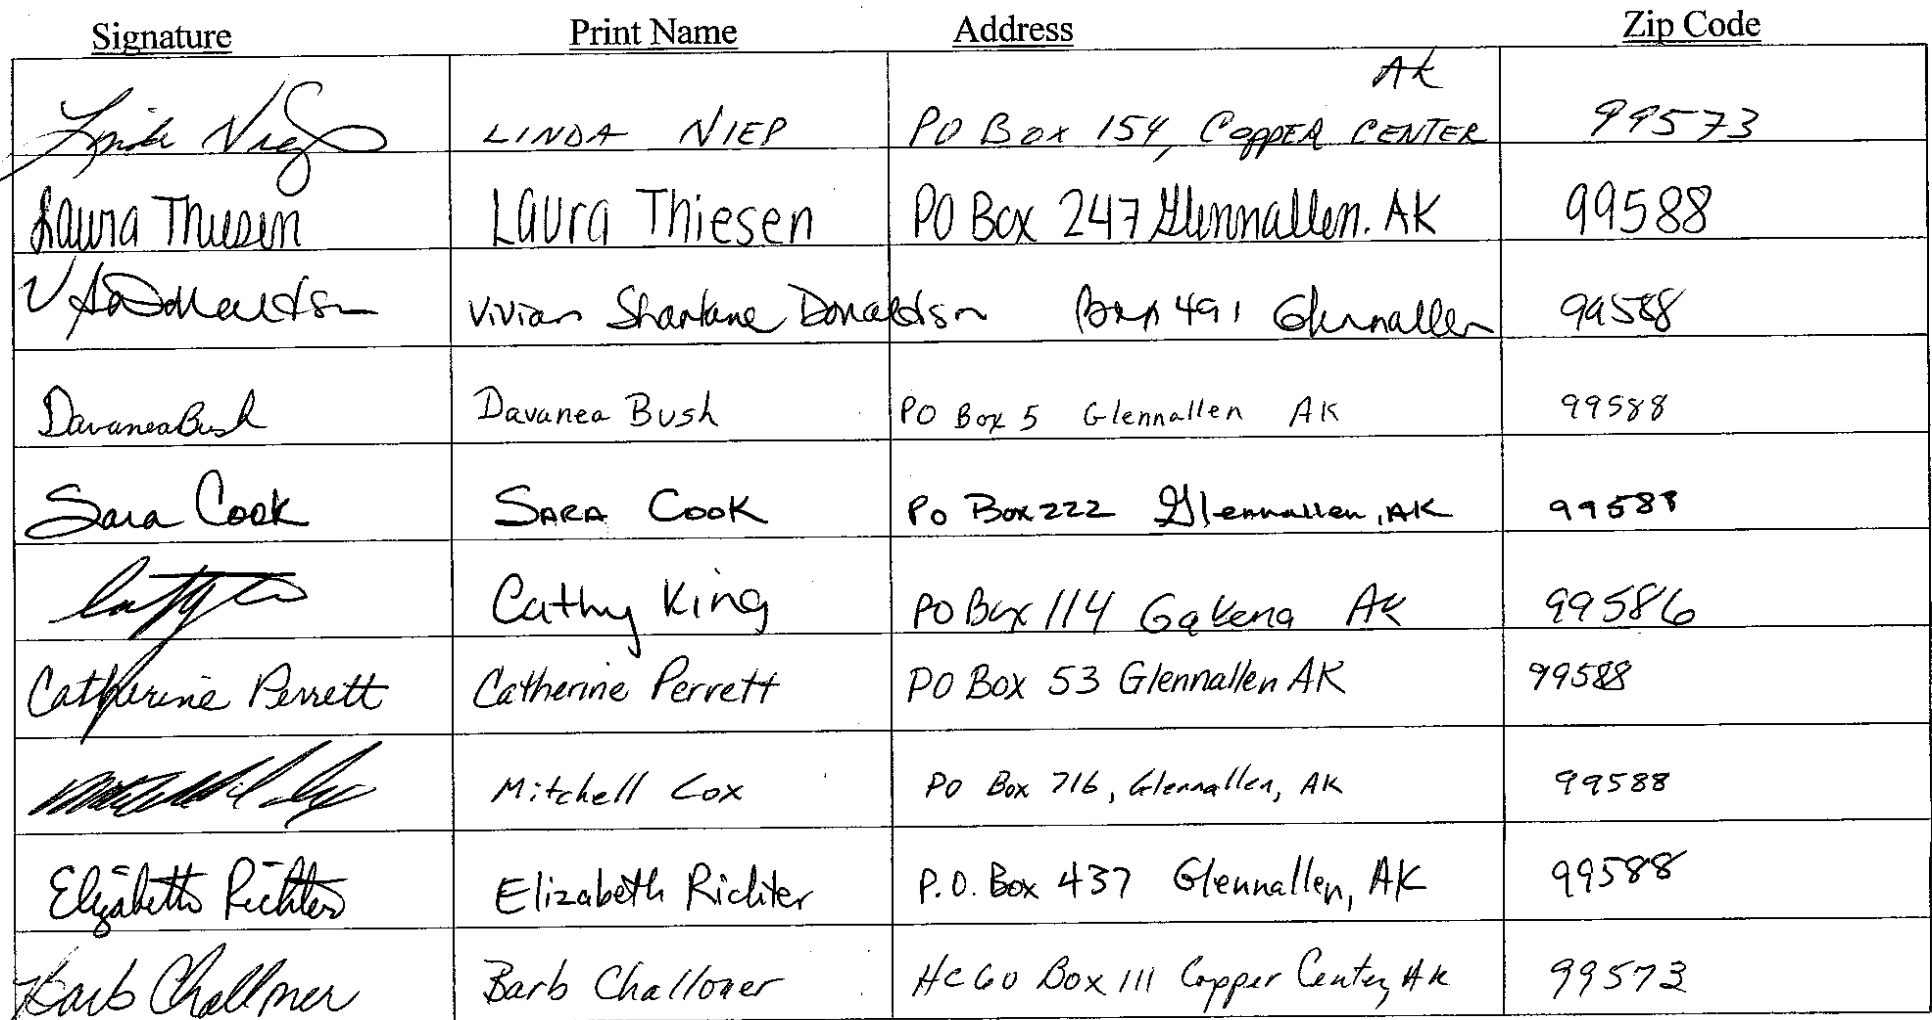 Signature Print Name Address Zip Code
AK
Linda Niep LINDA NIEP PO Box 154, COPPER CENTER 99573
Laura Thiesen Laura Thiesen PO Box 247 Glennallen. AK 99588
V S Donaldson Vivian Shantane Donaldson Box 491 Glennallen 99588
Davanea Bush Davanea Bush PO Box 5 Glennallen AK 99588
Sara Cook SARA COOK PO Box 222 Glennallen, AK 99588
Cathy King PO Box 114 Gakona AK 99586
Catherine Perrett Catherine Perrett PO Box 53 Glennallen AK 99588
Mitchell Cox PO Box 716, Glennallen, AK 99588
Elizabeth Richter Elizabeth Richter P.O. Box 437 Glennallen, AK 99588
Barb Challoner Barb Challoner HC60 Box 111 Copper Center, AK 99573